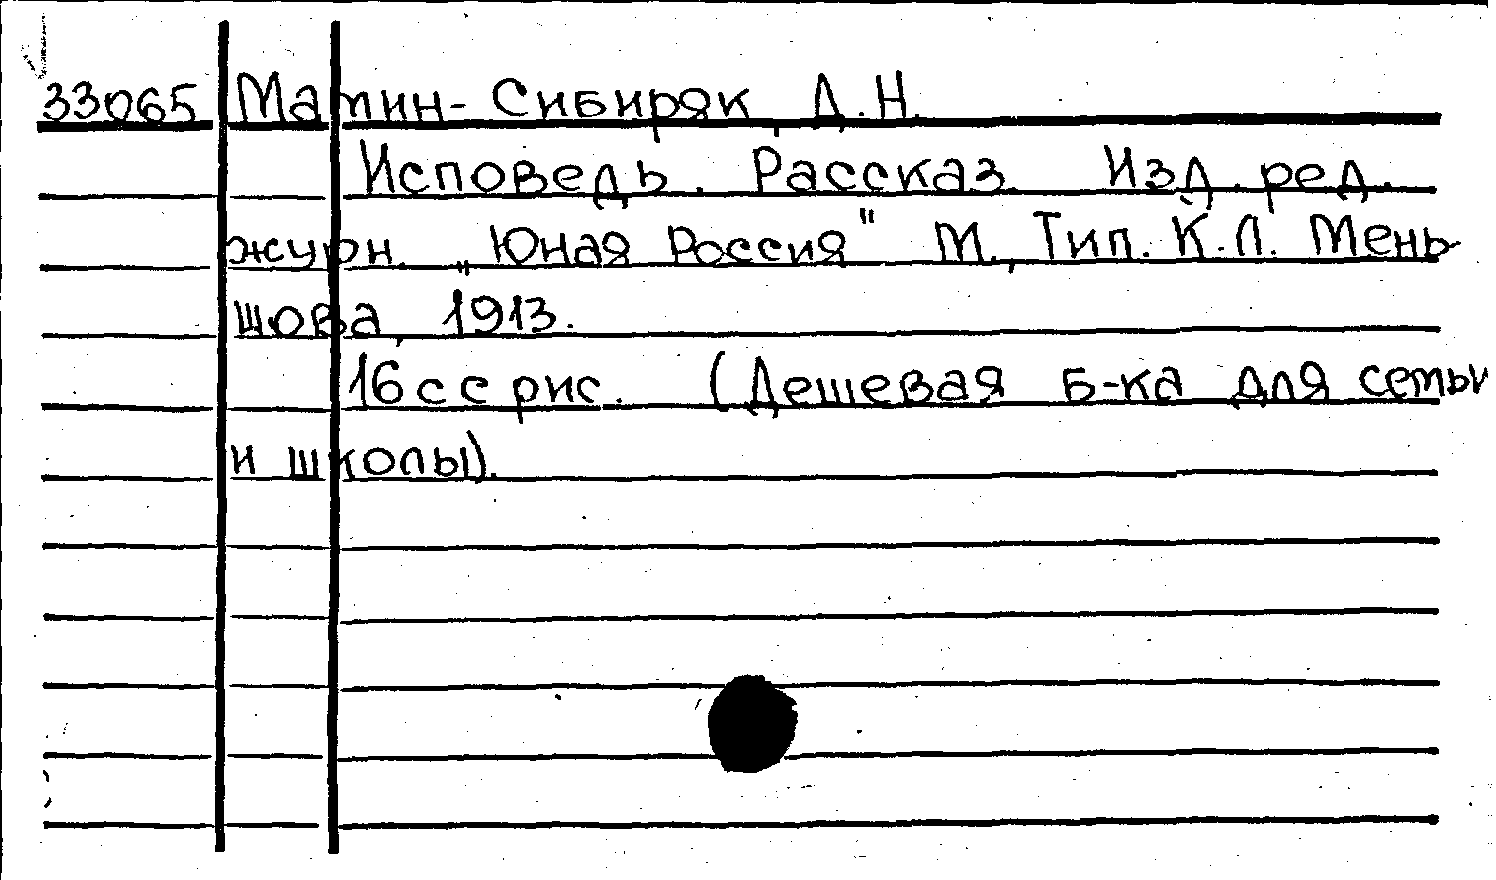 33065 Мамин-Сибиряк, Д.Н.
Исповедь. Рассказ. Изд. ред.
журн. „Юная Россия" М., Тип. К.Л. Мень-
шова, 1913.
16 с с рис. (Дешевая б-ка для семьи
и школы).